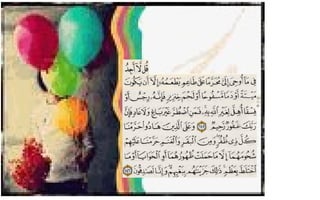 قُل لَّا أَجِدُ
فِي مَا أُوحِيَ إِلَيَّ مُحَرَّمًا عَلَىٰ طَاعِمٍ يَطْعَمُهُ إِلَّا أَن يَكُونَ
مَيْتَةً أَوْ دَمًا مَّسْفُوحًا أَوْ لَحْمَ خِنزِيرٍ فَإِنَّهُ رِجْسٌ أَوْ
فِسْقًا أُهِلَّ لِغَيْرِ اللَّهِ بِهِ فَمَنِ اضْطُرَّ غَيْرَ بَاغٍ وَلَا عَادٍ فَإِنَّ
رَبَّكَ غَفُورٌ رَّحِيمٌ ١٤٥ وَعَلَى الَّذِينَ هَادُوا حَرَّمْنَا
كُلَّ ذِي ظُفُرٍ وَمِنَ الْبَقَرِ وَالْغَنَمِ حَرَّمْنَا عَلَيْهِمْ
شُحُومَهُمَا إِلَّا مَا حَمَلَتْ ظُهُورُهُمَا أَوِ الْحَوَايَا أَوْ مَا
اخْتَلَطَ بِعَظْمٍ ذَٰلِكَ جَزَيْنَاهُم بِبَغْيِهِمْ وَإِنَّا لَصَادِقُونَ ١٤٦